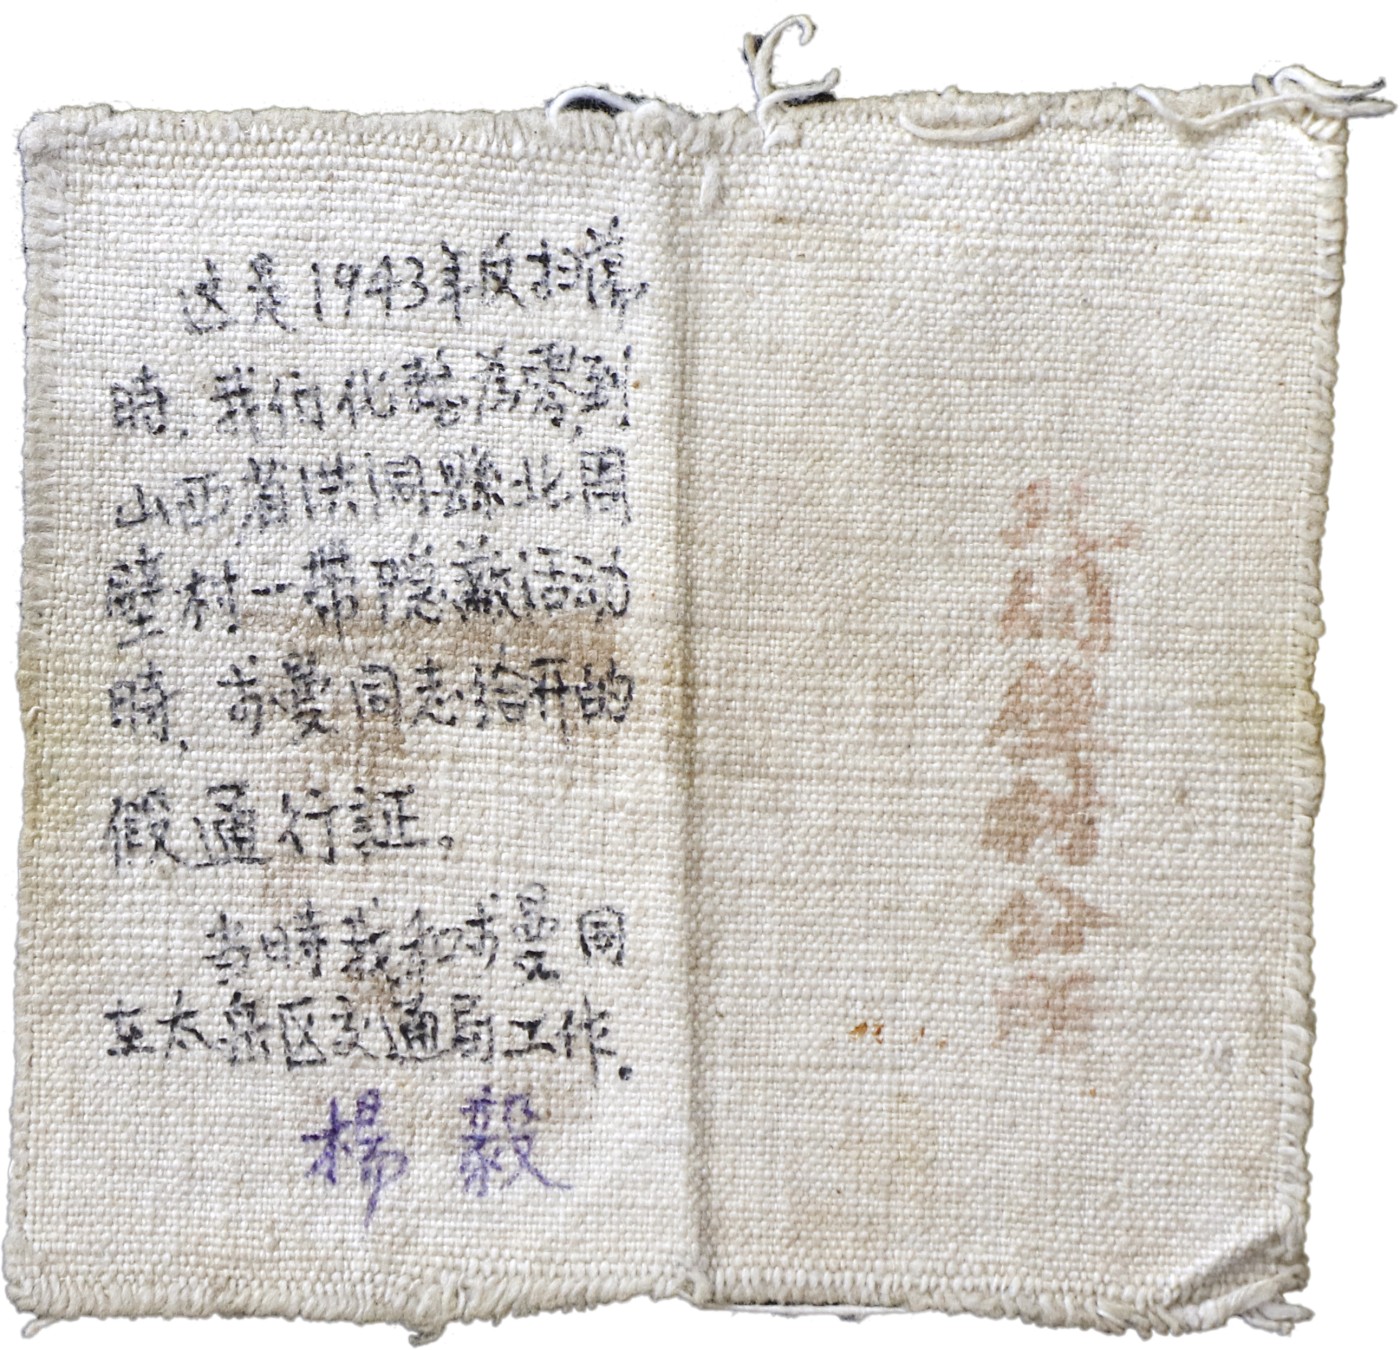 这是1943年反扫荡
時,我们化整为零到
山西省洪洞縣北周
壁村一带隐蔽活动
時,书曼同志给开的
假通行証。
当時我和书曼同
在太岳区交通局工作.
楊毅